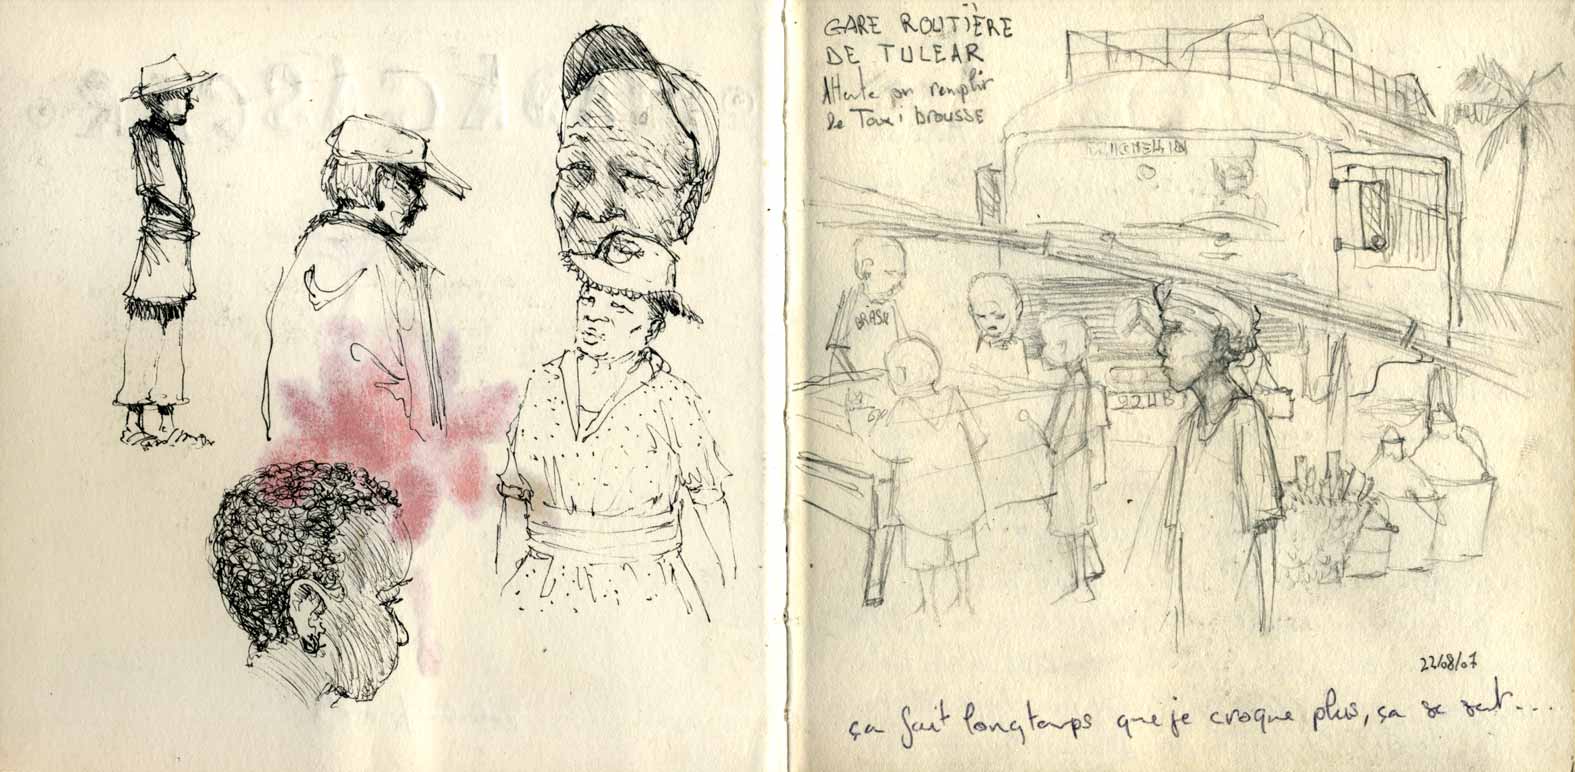 GARE ROUTIÈRE
DE TULEAR
Attente du remplir
de Taxi brousse
MICHELIN
BRASIL
22HB
22/08/07
ça fait longtemps que je croque plus, ça se sent...